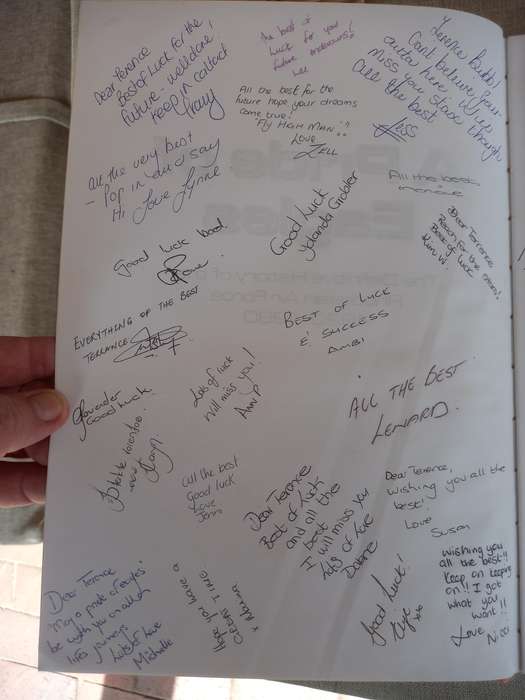 Dear Terence
Best of Luck for the
future - well done!
Keep in contact
Tracy
the best of
luck for you!
future endeavours!
Terence Bubbi
Cant believe your
outta here, I will
miss you stacks though
All the best
All the best for the
future hope your dreams
come true!
"Fly HIGH MAN"!!
LOVE
ZELL
All the very best
- Pop in and say
Hi Love Lynne
All the best
Monique
Good Luck
Yolanda Grobler
Dear Terrence
Reach for the
Best of luck
Kim W
Good luck
A Pride of
Eagles
The Definitive History of
Air Force
EVERYTHING OF THE BEST
TERRANCE
BEST OF LUCK
& SUCCESS
AMBI
Lots of luck
Will miss you!
Ann P
Good Luck
ALL THE BEST
LENARD.
All the best
Good luck
Love
Jenni
Dear Terence
Best of Luck
and all the
best
I will miss you
lots of love
Dear Terence,
Wishing you all the
best!
Love
Susan
Good Luck!
xxx
Wishing you
all the best!!
Keep on keeping
on!! I got
what you
want!!
Love
Nicci
Dear Terence
may a pride of eagles
be with you on all of
life's journeys
Lots of love
Michelle
Hope you have a
GREAT TIME